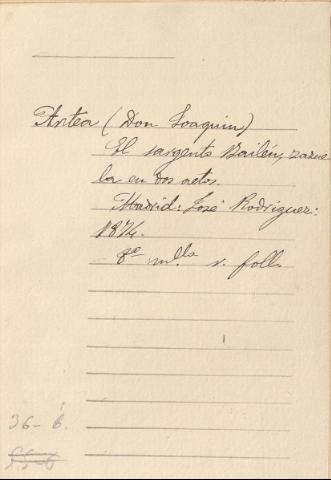 Artea (Don Joaquin)
El sargento Bailén, zarzue
la en dos actos.
Madrid: José Rodriguez:
1874.
8º mlla v. foll.
36- 6.